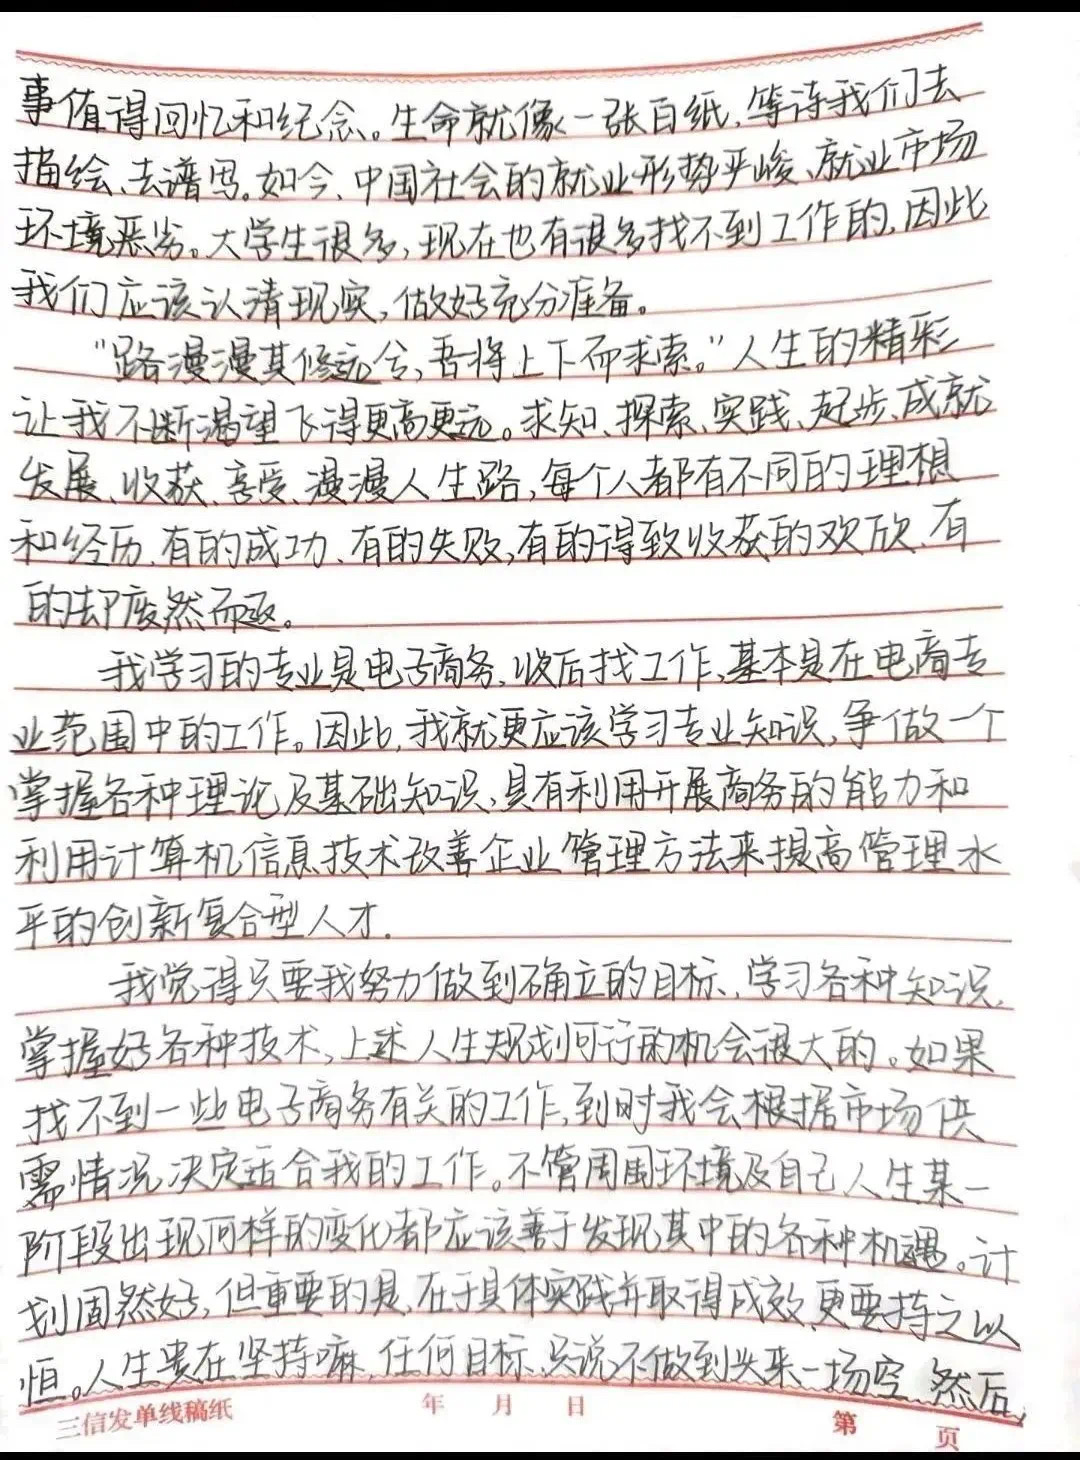 事值得回忆和纪念。生命就像一张白纸，等待我们去
描绘、去谱写。如今、中国社会的就业形势严峻、就业市场
环境恶劣。大学生很多，现在也有很多找不到工作的，因此
我们应该认清现实，做好充分准备。
“路漫漫其修远兮，吾将上下而求索。”人生的精彩
让我不断渴望飞得更高更远。求知、探索、实践、起步、成就
发展、收获、享受、漫漫人生路，每个人都有不同的理想
和经历、有的成功、有的失败，有的得致收获的欢欣、有
的却废然而返。
我学习的专业是电子商务，以后找工作，基本是在电商专
业范围中的工作。因此，我就更应该学习专业知识，争做一个
掌握各种理论及基础知识、具有利用开展商务的能力和
利用计算机信息技术改善企业管理方法来提高管理水
平的创新复合型人才.
我觉得只要我努力做到确立的目标、学习各种知识、
掌握好各种技术，上述人生规划可行的机会很大的。如果
找不到一些电子商务有关的工作，到时我会根据市场供
需情况决定适合我的工作。不管周围环境及自己人生某一
阶段出现何样的变化都应该善于发现其中的各种机遇。计
划固然好，但重要的是、在于具体实践并取得成效、更要持之以
恒。人生贵在坚持嘛，任何目标、只说不做到头来一场空 然后，
三信发单线稿纸 年 月 日 第 页